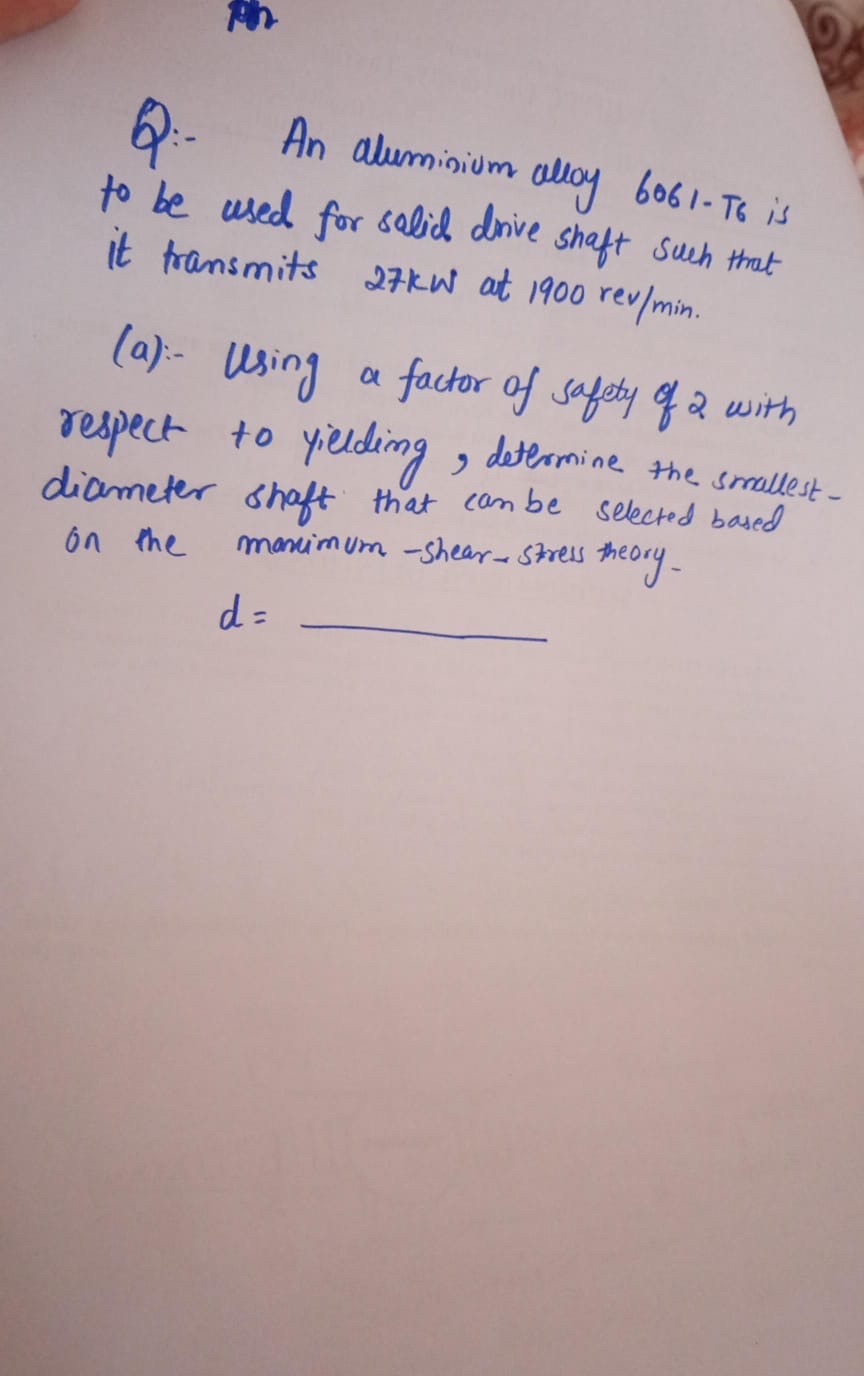 Q:- An aluminium alloy 6061-T6 is
to be used for solid drive shaft such that
it transmits 27KW at 1900 rev/min.
(a):- Using a factor of safety of 2 with
respect to yielding, determine the smallest-
diameter shaft that can be selected based
on the maximum-shear-stress theory-
d = ________